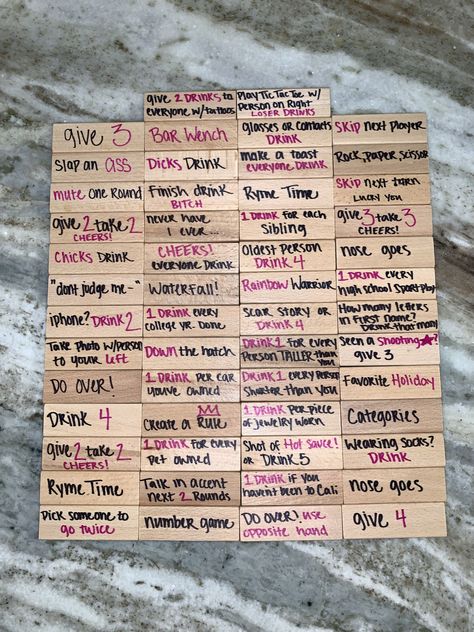 give 2 DRINKS to
everyone w/tattoos
Play Tic Tac Toe w/
Person on Right
LOSER DRINKS
give 3
BAR WENCH
glasses or contacts
DRINK
SKIP next Player
Slap an ASS
Dicks DRINK
make a toast
everyone DRINK
ROCK, PAPER, SCISSOR
mute One Round
Finish drink
BITCH
Ryme Time
SKIP next turn
Lucky you
give 2 take 2
CHEERS!
never have
I ever...
1 DRINK for each
Sibling
give 3 take 3
CHEERS!
Chicks DRINK
CHEERS!
everyone DRINK
Oldest Person
DRINK 4
nose goes
"dont judge me--"
Waterfall!
Rainbow Warrior
1 DRINK every
high school Sport Play
iphone? DRINK 2
1 DRINK every
college yr. Done
Scar Story or
DRINK 4
How many letters
in First name?
Drink that many
Take Photo w/Person
to your left
Down the hatch
DRINK 1 for every
Person TALLER than
you
Seen a shooting ☆?
give 3
DO OVER!
1 DRINK Per car
you've owned
DRINK 1 every Person
Shorter than You
Favorite Holiday
DRINK 4
Create a Rule
1 DRINK Per piece
of jewelry worn
Categories
give 2 take 2
CHEERS!
1 DRINK for every
Pet owned
Shot of Hot Sauce!
or DRINK 5
Wearing Socks?
DRINK
Ryme Time
Talk in accent
next 2 Rounds
1 DRINK if you
havent been to Cali
nose goes
Pick someone to
go twice
number game
DO OVER! use
opposite hand
give 4